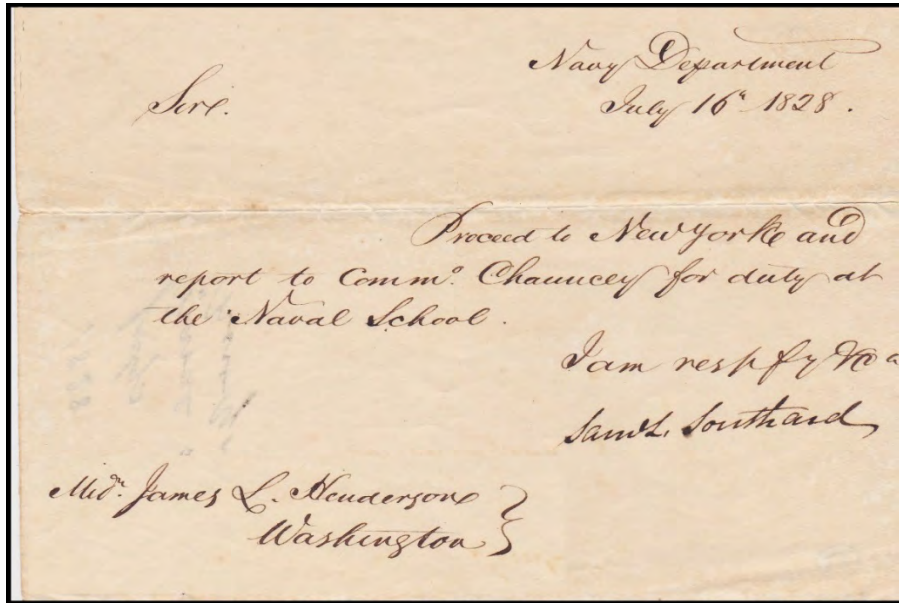 Navy Department
July 16th 1828.
Sir.
Proceed to New York and
report to Commo. Chauncey for duty at
the Naval School.
I am respfy &c a
Saml. L. Southard
Midn. James L. Henderson
Washington